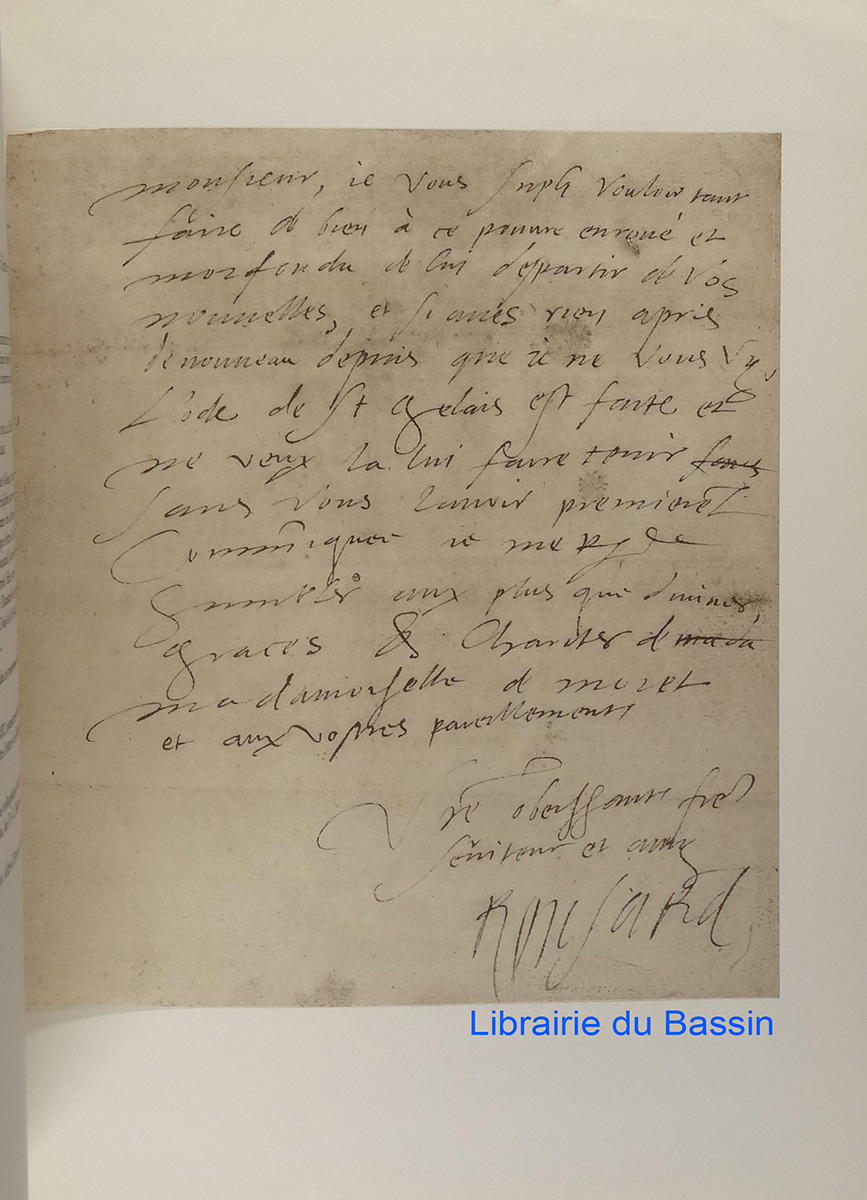 monsieur, ie vous supli vouloir tant
faire de bien à ce pauure enroué et
morfondu de lui despartir de vos
nouuelles, et si aues rien apris
de nouueau depuis que ie ne vous vy,
L'ode de st gelais est faite et
ne veux la lui faire tenir
sans vous l'auoir premieret
Communiquer ie me
aux plus que diuines,
graces & Charites de
madamoiselle de morel
et aux vostres pareillement
Vre obeissant frere
seruiteur et amy
Ronsard
Librairie du Bassin